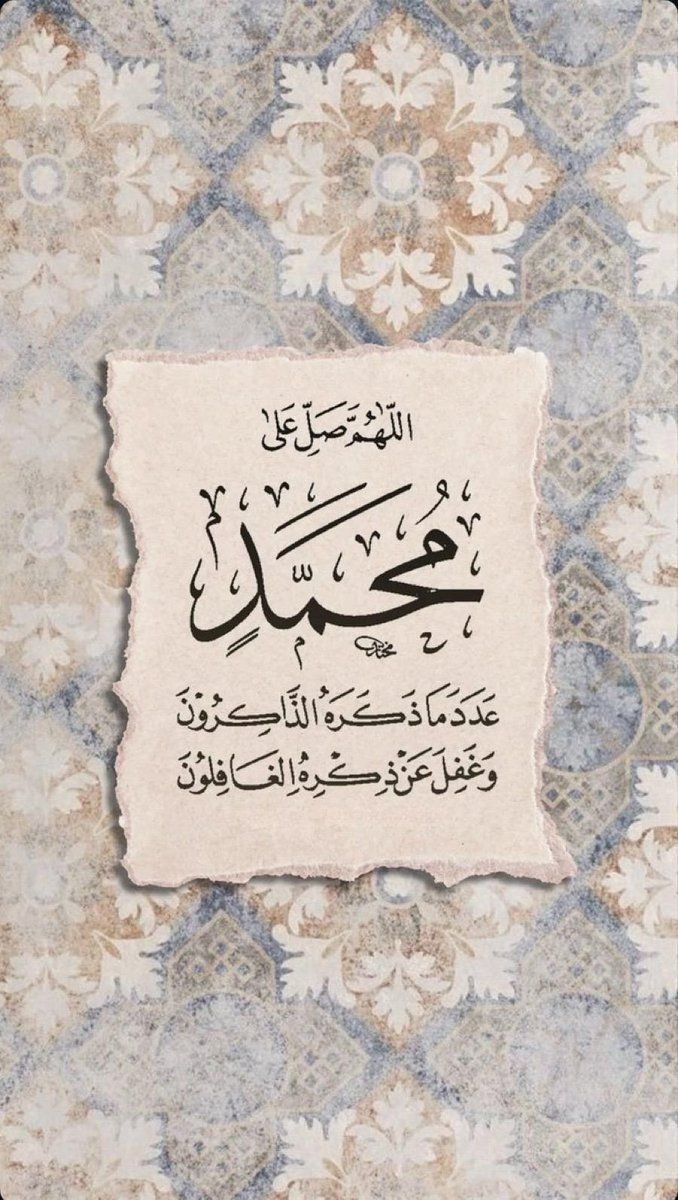 اللّٰهُمَّ صَلِّ عَلىٰ
مُحَمَّدٍ
عَدَدَ مَا ذَكَرَهُ الذَّاكِرُوْنَ
وَغَفِلَ عَنْ ذِكْرِهِ الْغَافِلُوْنَ